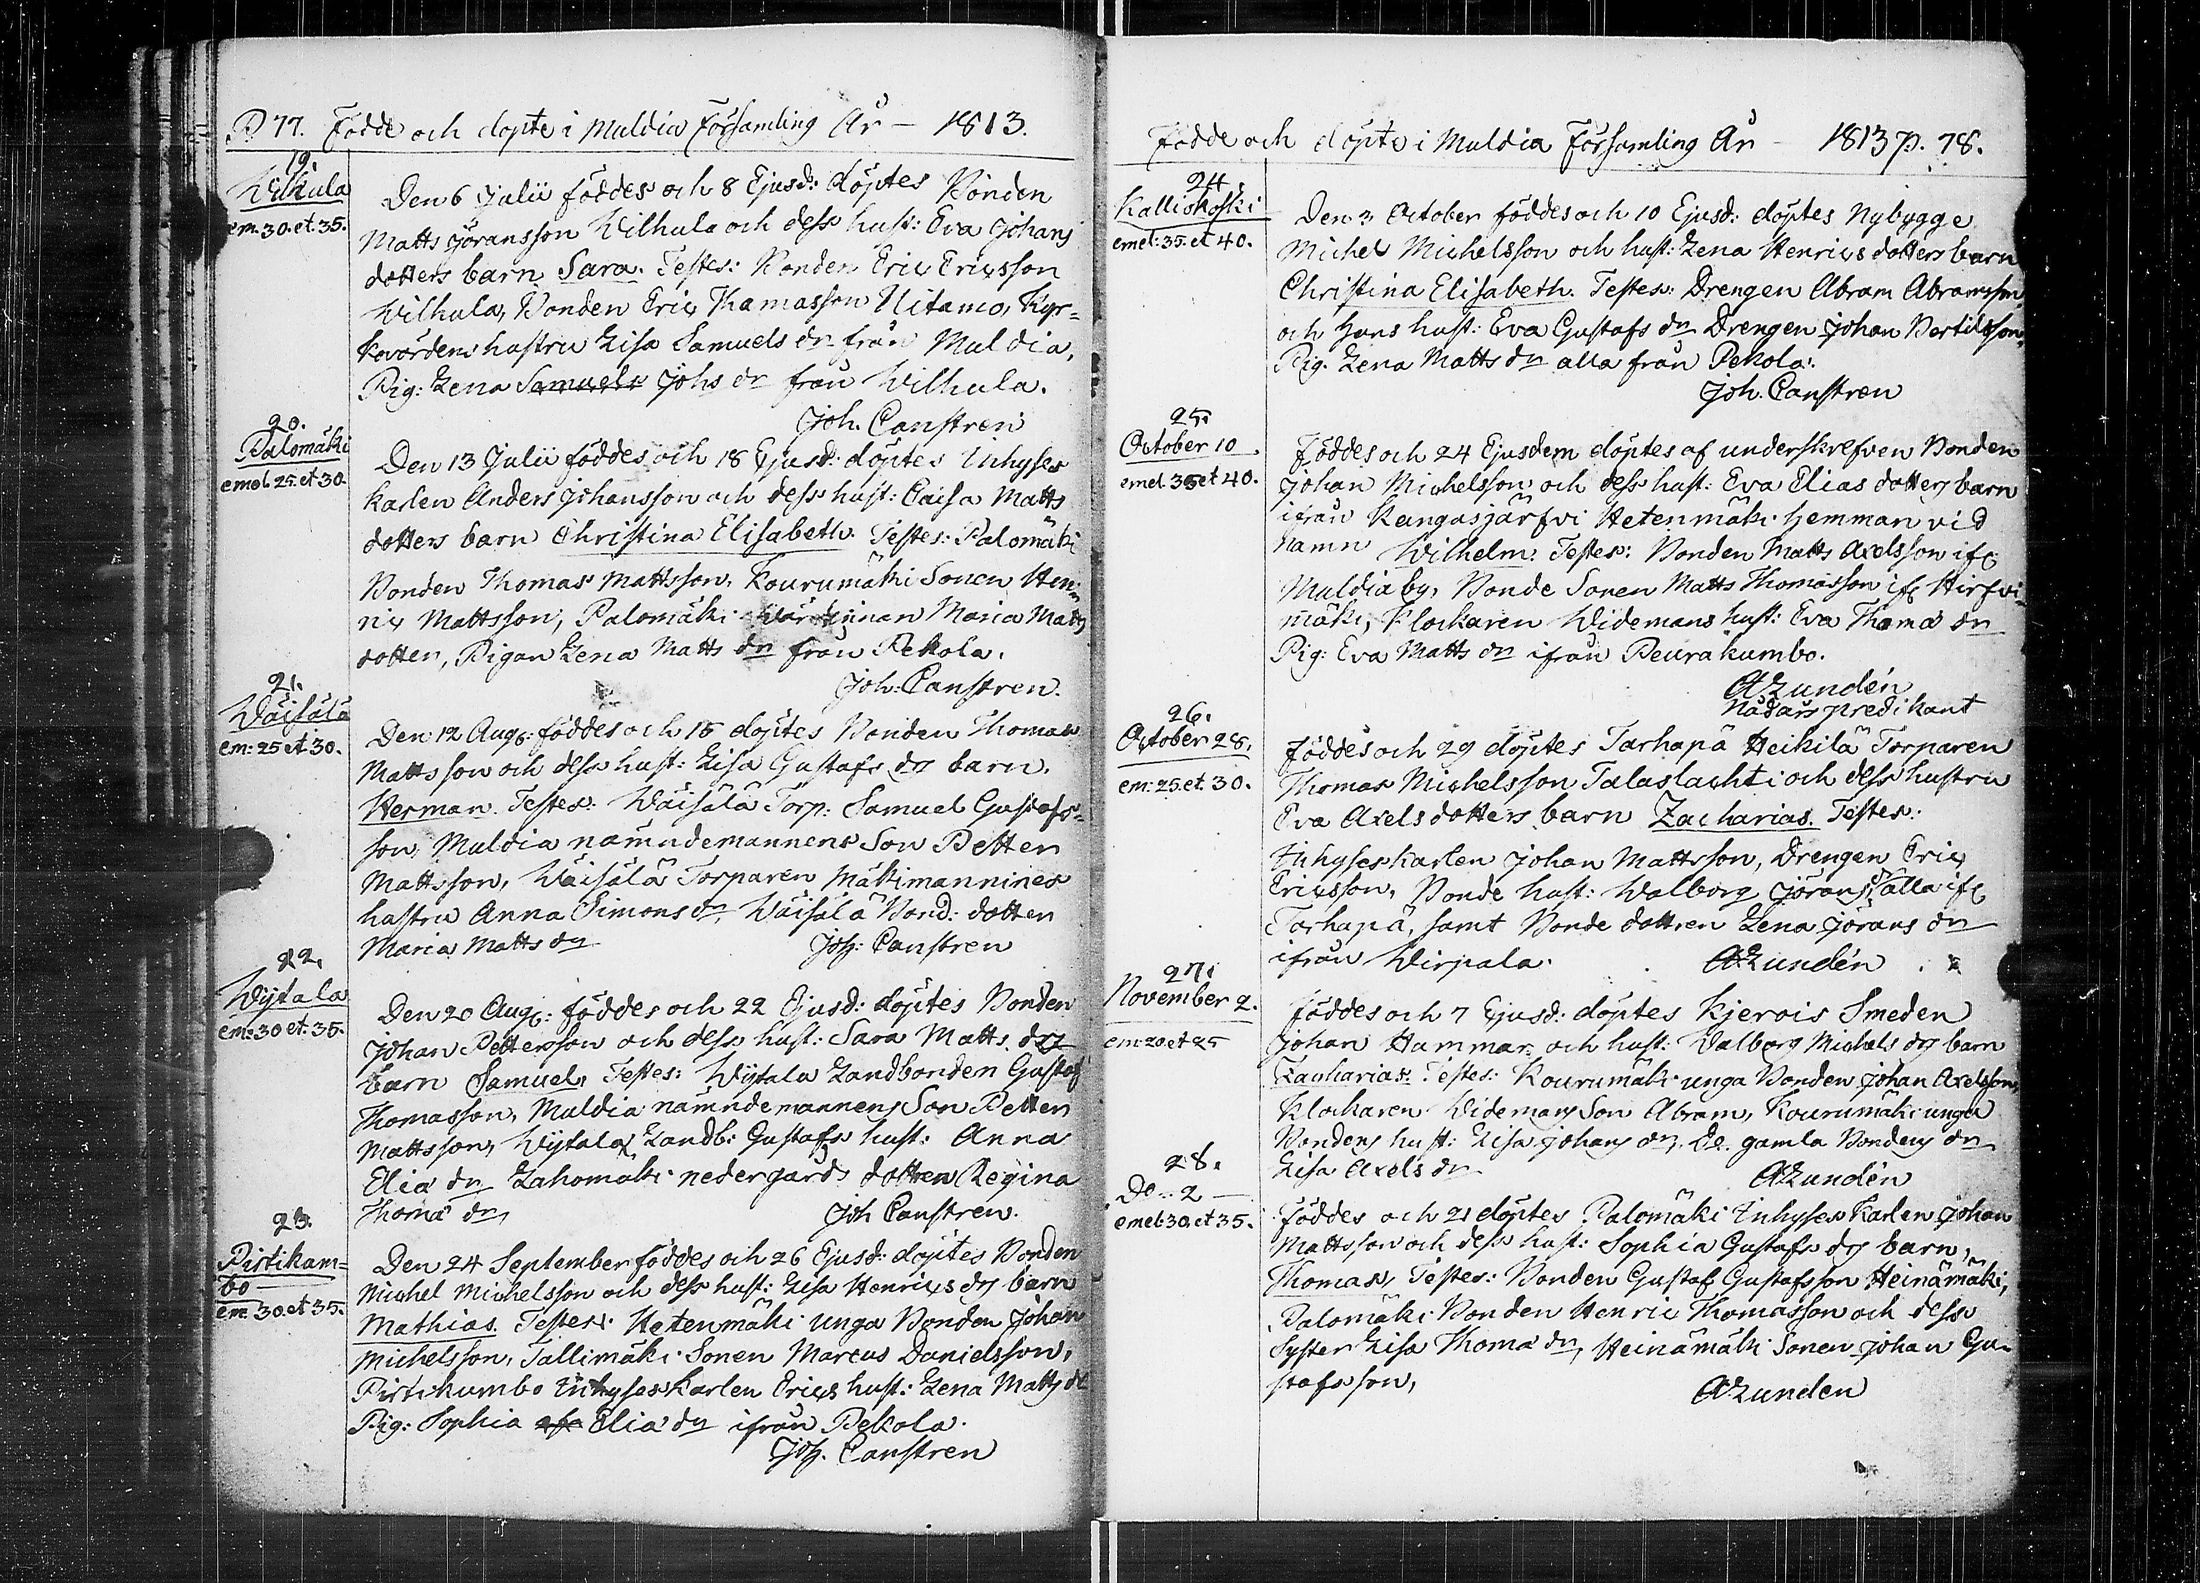 P 77. Födde och döpte i Muldia Församling År — 1813.
19.
Wilhula
em. 30. et. 35.
Den 6 Julii föddes och 8 Ejusd: döptes Bonden
Matts Göransson Wilhula och dess hust: Eva Johans
dotters barn Sara. Testes: Bonden Eric Ericsson
Wilhula, Bonden Eric Thomasson Uitamo, Kyr=
kovärdens hustru Lisa Samuels dr från Muldia,
Pig: Lena Samuels Johs dr från Wilhula.
Joh. Canstren
20.
Palomäki
emel. 25. et 30.
Den 13 Julii föddes och 18 Ejusd: döptes Inhyses
karlen Anders Johansson och dess hust: Caisa Matts
dotters barn Christina Elisabeth. Testes: Palomäki
Bonden Thomas Mattsson, Kourumäki Sonen Hen=
ric Mattsson, Palomäki Värdinnan Maria Matts
dotter, Pigan Lena Matts dr från Pekola.
Joh: Canstren.
21.
Wäisälä
em: 25 et 30.
Den 12 Aug: föddes och 15 döptes Bonden Thomas
Mattsson och dess hust: Lisa Gustafs dr barn.
Herman. Testes: Wäisälä Torp: Samuel Gustafs=
son, Muldia nämndemannens Son Petter
Mattsson, Wäisälä Torparen Mäkimannines
hustru Anna Simons dr, Wäisälä Bond: dotter
Maria Matts dr
Joh: Canstren
22.
Wijtala
em: 30 et. 35.
Den 20 Aug: föddes och 22 Ejusd: döptes Bonden
Johan Pettersson och dess hust: Sara Matts dr
barn Samuel, Testes: Wijtala Landbonden Gustaf
Thomasson, Muldia nämndemannens Son Petter
Mattsson, Wijtala Landb: Gustafs hust: Anna
Elia dr Lahomäki nedergårds dotter Regina
Thoma dr,
Joh Canstren.
23.
Pirtikam=
bo
em. 30. et 35.
Den 24 September föddes och 26 Ejusd: döptes Bonden
Michel Michelsson och dess hust: Lisa Henrics dr barn
Mathias. Testes: Hetenmäki unga Bonden Johan
Michelsson, Tallimäki Sonen Marcus Danielsson,
Pirtikumbo Inhyses Karlen Erics hust: Lena Matts dr
Pig: Sophia Elia dr ifrån Pekola.
Joh. Canstren
Födde och döpte i Muldia Församling År — 1813 p. 78.
24.
Kalliokoski
emel: 35. et 40.
Den 3 October föddes och 10 Ejusd: döptes Nybygge
Michel Michelsson och hust: Lena Henrics dotters barn
Christina Elisabeth. Testes: Drengen Abram Abramsson
och hans hust: Eva Gustafs dr Drengen Johan Bertilsson,
Pig. Lena Matts dr alla från Pekola.
Joh. Canstren
25.
October 10.
emel 35 et 40.
Föddes och 24 Ejusdem döptes af underskrefven Bonden
Johan Michelsson och dess hust: Eva Elias dotters barn
ifrån Kangasjärfvi Hetenmäki hemman vid
namn Wilhelm. Testes: Bonden Matts Axelsson ifr
Muldia by, Bonde Sonen Matts Thomasson ifr Hirfvi=
mäki, Klockaren Widemans hust: Eva Thoma dr
Pig: Eva Matts dr ifrån Peurakumbo.
A Lundén
Nådårs predikant
26.
October 28.
em: 25. et. 30.
Föddes och 29 döptes Tarhapä Heikilä Torparen
Thomas Michelsson Talaslachti och dess hustru
Eva Axels dotters barn Zacharias. Testes:
Inhyses karlen Johan Mattsson, Drengen Eric
Ericsson, Bonde hust: Walborg Jörans dr alla ifr
Tarhapä, samt Bonde dottren Lena Jörans dr
ifrån Wirpala.
A Lundén
27.
November 2.
em: 20 et 25
Föddes och 7 Ejusd: döptes Kjerois Smeden
Johan Hammar och hust: Walborg Michels dr barn
Zacharias. Testes: Kourumäki unga Bonden Johan Axelsson,
Klockaren Widemans Son Abram, Kourumäki unga
Bondens hust: Lisa Johans dr, De gamla Bondens dr
Lisa Axels dr
A Lundén
28.
Do .. 2 —
emel. 30. et 35.
Föddes och 21 döptes Palomäki Inhyses Karlen Johan
Mattsson och dess hust: Sophia Gustafs dr barn,
Thomas, Testes: Bonden Gustaf Gustafsson Heinämäki,
Palomäki Bonden Henric Thomasson och dess
Syster Lisa Thoma dr, Heinämäki Sonen Johan Gu=
stafsson,
A Lunden